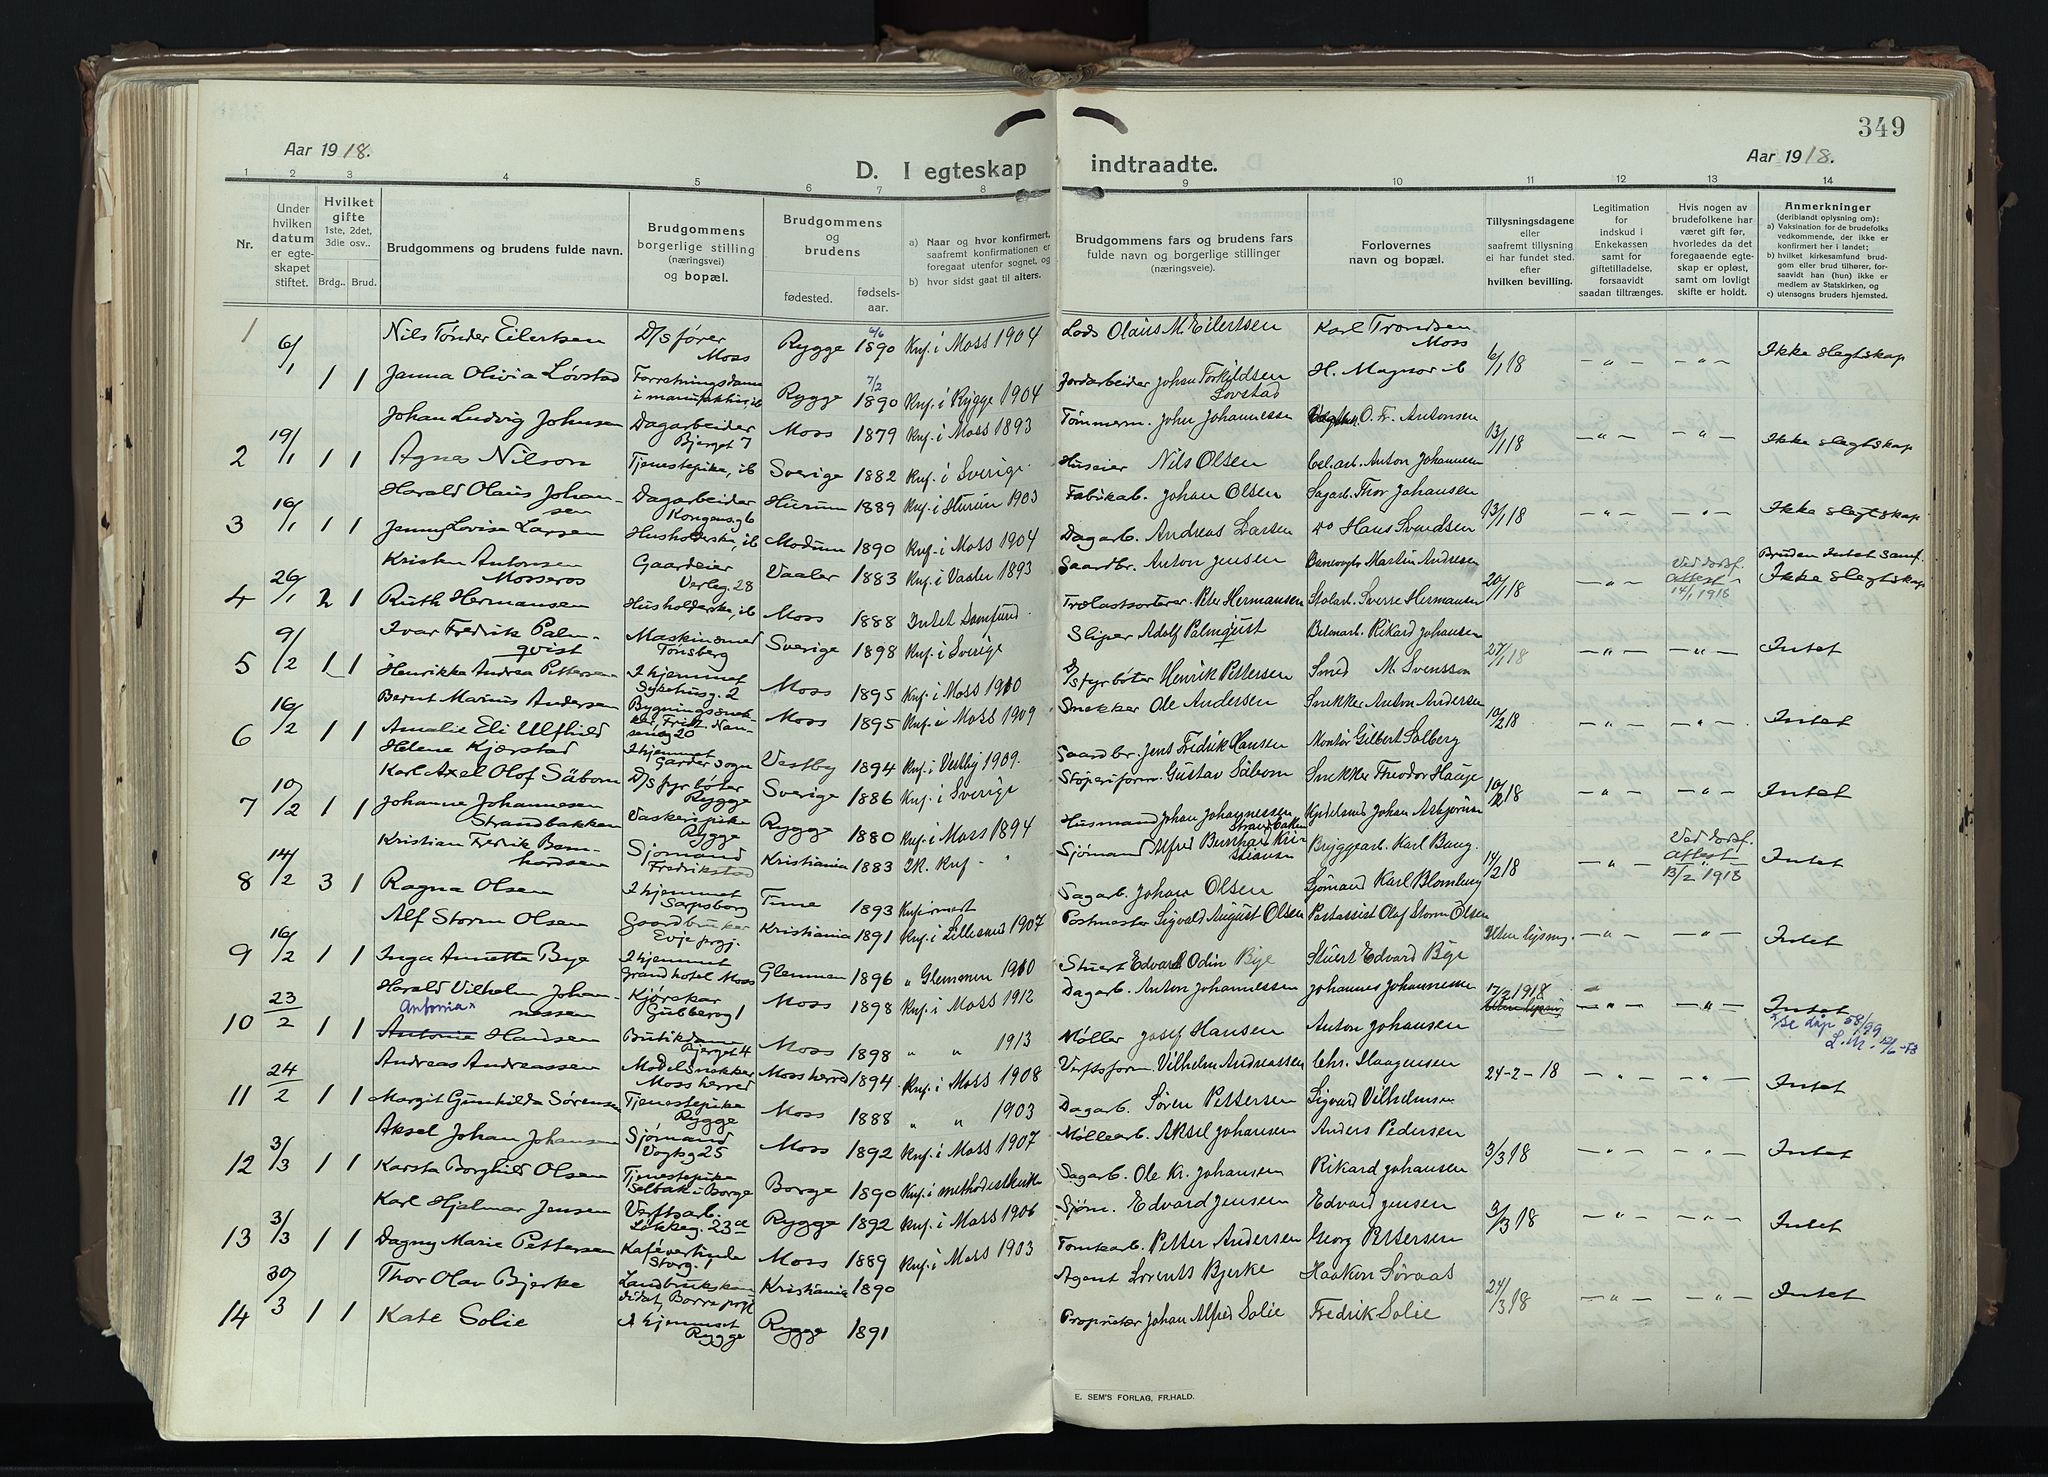 349
Aar 1918.
D. I egteskap indtraadte.
Aar 1918.
1 2 3 4 5 6 7 8 9 10 11 12 13 14
Nr.
Under hvilken datum er egteskapet stiftet.
Hvilket gifte 1ste, 2det, 3die osv..
Brdg.. Brud.
Brudgommens og brudens fulde navn.
Brudgommens borgerlige stilling (næringsvei) og bopæl.
Brudgommens og brudens
fødested.
fødsels-aar.
a) Naar og hvor konfirmert, saafremt konfirmationen er foregaat utenfor sognet, og
b) hvor sidst gaat til alters.
Brudgommens fars og brudens fars fulde navn og borgerlige stillinger (næringsveie).
Forlovernes navn og bopæl.
Tillysningsdagene eller saafremt tillysning ei har fundet sted. efter hvilken bevilling.
Legitimation for indskud i Enkekassen samt for giftetilladelse, forsaavidt saadan tiltrænges.
Hvis nogen av brudefolkene har været gift før, hvorledes da det foregaaende egteskap er opløst, samt om lovligt skifte er holdt.
Anmerkninger (deriblandt oplysning om): a) Vaksination for de brudefolks vedkommende, der ikke er konfirmert her i landet; b) hvilket kirkesamfund brudgom eller brud tilhører, forsaavidt han (hun) ikke er medlem av Statskirken, og c) utensogns bruders hjemsted.
1 6/1 Nils Tønder Eilertsen D/sfører Moss Rygge 6/6 1890 Knf. i Moss 1904 Lods Olaus M. Eilertsen Karl Trondsen Moss 6/1 18 - " - - " - Ikke slegtskap
1 1 Janna Olivia Løvstad Forretningsdame i manufaktur, ib Rygge 7/2 1890 Knf. i Rygge 1904 Jordarbeider Johan Torkildsen Lovstad H. Magnor ib
2 19/1 1 1 Johan Ludvig Johnsen Dagarbeider Bjerget 7 Moss 1879 Knf. i Moss 1893 Tømmerm. John Johannessen O. Fr. Antonsen 13/1 18 - " - - " - Ikke slegtskap
Agnes Nilson Tjenestepike, ib Sverige 1882 Knf. i Sverige. Huseier Nils Olsen Cel.arb. Anton Johannesen
3 19/1 1 1 Harald Olaus Johansen Dagarbeider Kongensg 6 Hurum 1889 Knf. i Hurum 1903 Fabrikab. Johan Olsen Sagarb. Thor Johansen 13/1 18 - " - - " - Ikke slegtskap
Jenny Lovise Larsen Husholderske, ib Modum 1890 Knf. i Moss 1904 Dagarb. Andreas Larsen Do Hans Svendsen
4 26/1 2 1 Kristen Antonsen Mosseros Gaardeier Verleg. 28 Vaaler 1883 Knf. i Vaaler 1893 Gaardbr. Anton Jensen Banevogter Martin Andresen 20/1 18 - " - Ved dødsf. Attest 14/1 1918 Bruden Intet Samf. Ikke slegtskap
Ruth Hermansen Husholderske, ib Moss 1888 Intet Samfund. Trælastsorterer Peter Hermansen Stolarb. Sverre Hermansen
5 9/2 1 1 Ivar Fredrik Palmqvist Maskinsmed Tønsberg Sverige 1898 Knf. i Sverige Sliper Adolf Palmquist Betonarb. Rikard Johansen 27/1 18 - " - - " - Intet
Henrikke Andrea Pettersen I hjemmet Sykehusg. 2 Moss 1895 Knf. i Moss 1910 D/sfyrbøter Henrik Pettersen Smed M. Svensson
6 16/2 1 1 Bernt Marius Andersen Bygningssnekker, Fritz. Nansensg 20 Moss 1895 Knf. i Moss 1909 Snekker Ole Andersen Snekker Anton Andersen 10/2 18 - " - - " - Intet
Amalie Eli Ulfhild Helene Kjærstad I hjemmet Garder sogn Vestby 1894 Knf. i Vestby 1909. Gaardbr. Jens Fredrik Hansen Montør Gilbert Solberg
7 10/2 1 1 Karl Axel Olof Säbom D/sfyrbøter Rygge Sverige 1886 Knf. i Sverige Støperiform. Gustav Säbom Snekker Theodor Hauge 10/2 18 - " - - " - Intet
Johanne Johannesen Strandbakken Vaskeripike Rygge Rygge 1880 Knf. i Moss 1894 Husmand Johan Johannessen Strandbakken Johan Asbjørnsen
8 14/2 3 1 Kristian Fredrik Bernhardsen Sjømand Fredrikstad Kristiania 1883 2K. Knf - " Sjømand Alfred Bernhard Kristiansen Bryggearb. Karl Baug. 14/2 18 - " - Ved dødsf. Attest 13/2 1918 Intet
Ragna Olsen I hjemmet Sarpsborg Tune 1893 Knfirmert Sagarb. Johan Olsen Sjømand Karl Blomberg
9 16/2 1 1 Alf Storm Olsen Gaardbruker Evje prgj. Kristiania 1891 Knf. i Lillesand 1907 Postmester Sigvald August Olsen Postassist Olaf Storm Olsen Uten lysning. - " - - " - Intet
Inga Annette Bye I hjemmet Grand hotel Moss Glemmen 1896 " Glemmen 1910 Stuert Edvard Odin Bye Stuert Edvard Bye
10 23/2 1 1 Harald Vilhelm Johannessen Kjørekar Gubberog 1 Moss 1898 Knf. i Moss 1912 Dagarb. Anton Johannessen Johannes Johannessen 17/2 1918 - " - - " - Intet
Antonia x Antonie Hansen Butikdame Bjerget 4 Moss 1898 " " 1913 Møller Josef Hansen Anton Johansen x/ se dåp 58/99
11 24/2 1 1 Andreas Andreassen Modelsnekker Moss herred Moss herred 1894 Knf. i Moss 1908 Verftsform. Vilhelm Andreassen Chr. Haagensen 24-2-18 - " - - " - Intet
Margit Gunhilda Sørensen Tjenestepike Rygge Moss 1888 " " 1903 Dagarb. Søren Pettersen Sigvard Vilhelmsen
12 3/3 1 1 Aksel Johan Johansen Sjømand Vogtsg 25 Moss 1892 Knf. i Moss 1907 Møllearb. Aksel Johansen Anders Pedersen 3/3 18 - " - - " - Intet
Karsta Borghild Olsen Tjenestepike Selbak i Borge Borge 1890 Knf. i methodistkirke Sagarb. Ole Kr. Johansen Rikard Johansen
13 3/3 1 1 Karl Hjalmar Jensen Verftsarb. Løkkeg. 23a Rygge 1892 Knf. i Moss 1906 Sjøm. Edvard Jensen Edvard Jensen 3/3 18 - " - - " - Intet
Dagny Marie Pettersen Kafévertinde Storg. 1 Moss 1889 Knf. i Moss 1903 Tomtearb. Petter Andersen Georg Pettersen
14 30/3 1 1 Thor Olav Bjerke Landbrukskandidat, Borre prgj. Kristiania 1890 Agent Lorents Bjerke Haakon Søraas 24/3 18 - " - - " - Intet
Kate Solie I hjemmet Rygge Rygge 1891 Proprietær Johan Alfred Solie Fredrik Solie
E. SEM'S FORLAG, FR.HALD.